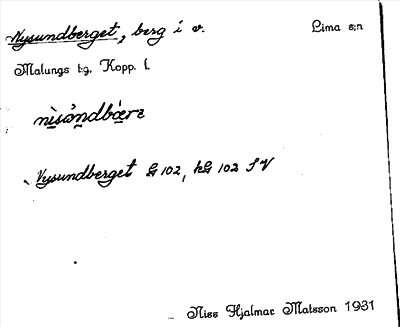 Nysundberget, berg i v. Lima s:n
Malungs tg, Kopp. l.
nìsúndbæ̀rɛ
Nysundberget G 102, kG 102 SV
Niss Hjalmar Matsson 1931